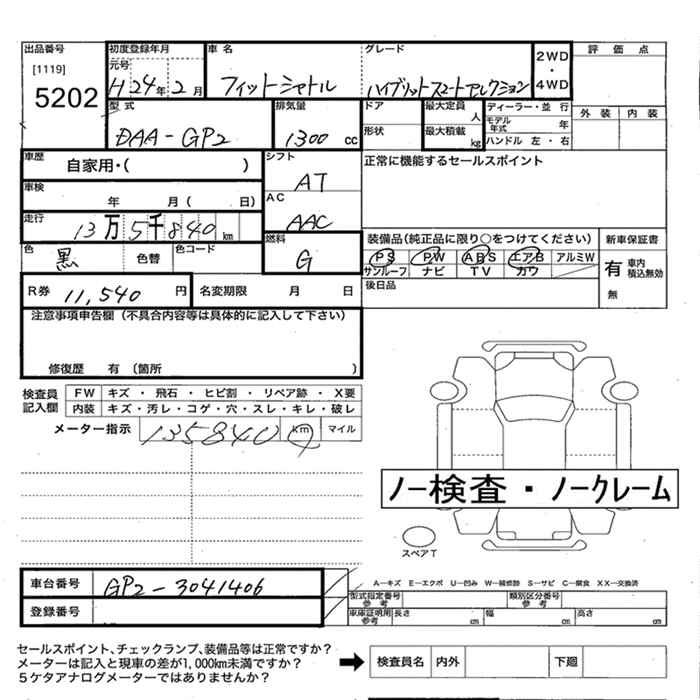 出品番号 初度登録年月 車名 グレード 2WD・4WD 評価点
[1119] 元号
5202 H24年2月 フィットシャトル ハイブリットスマートセレクション
型式 排気量 ドア 最大定員 人 ディーラー・並行 外装 内装
DAA-GP2 1300cc 形状 最大積載 kg モデル年式 年
ハンドル 左・右
車歴 自家用・( ) シフト AT 正常に機能するセールスポイント
車検 年 月( 日) AC AAC
走行 13万5千840km 燃料 G 装備品(純正品に限り○をつけてください) 新車保証書
色 黒 色替 色コード PS PW ABS エアB アルミW 有 車内 積込無効
サンルーフ ナビ TV カワ 無
R券 11,540円 名変期限 月 日 後日品
注意事項申告欄(不具合内容等は具体的に記入して下さい)
修復歴 有(箇所 )
検査員記入欄 FW キズ・飛石・ヒビ割・リペア跡・X要
内装 キズ・汚レ・コゲ・穴・スレ・キレ・破レ
メーター指示 135840 km マイル
ノー検査・ノークレーム
スペアT
車台番号 GP2-3041406
A−キズ E−エクボ U−凹み W−補修跡 S−サビ C−腐食 XX−交換済
登録番号 型式指定番号 参考 類別区分番号 参考
車庫証明用 参考 長さ cm 幅 cm 高さ cm
セールスポイント、チェックランプ、装備品等は正常ですか?
メーターは記入と現車の差が1,000km未満ですか?
5ケタアナログメーターではありませんか?
検査員名 内外 下廻